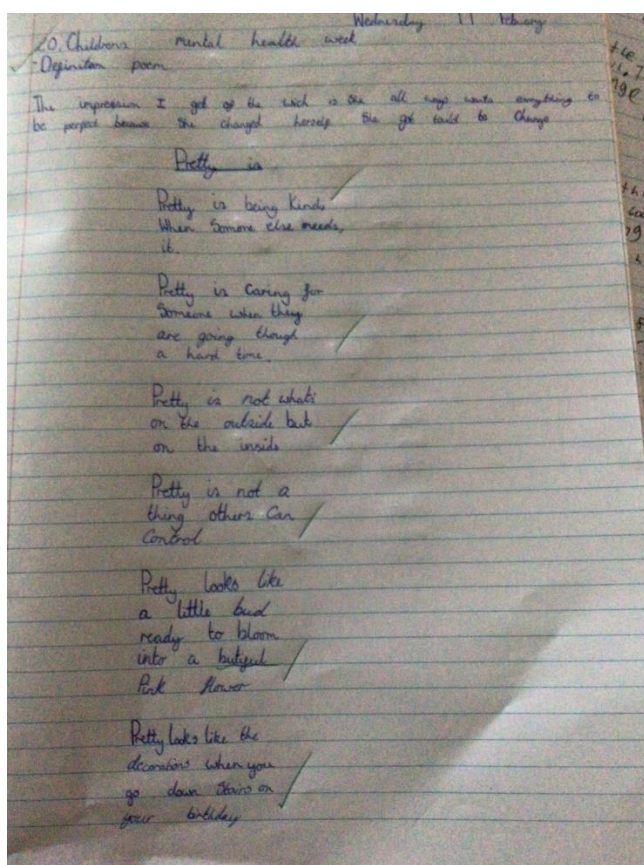 Wednesday 11 Febuary
20. Childrens mental health week
-Definiton poem
The impression I got of the wich is She all ways wants everything to
be perfect because She changed herself She got to change
Pretty is
Pretty is being kind
When Somone else needs,
it.
Pretty is Caring for
Someone when they
are going though
a hard time.
Pretty is not whats
on the outside but
on the inside
Pretty is not a
thing others Can
Control
Pretty looks like
a little bud
ready to bloom
into a butyful
Pink flower
Pretty looks like the
decorations when you
go down Stairs on
your birthday